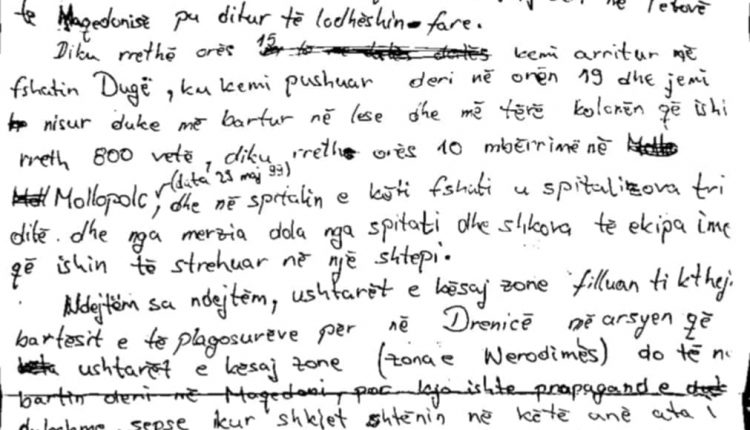 në Tetovë
te Maqedonisë pa ditur të lodhëshin fare.
Diku rrethë orës 15 kemi arritur në
fshatin Dugë, ku kemi pushuar deri në orën 19 dhe jemi
nisur duke më bartur në lese dhe më tërë kolonën që ishi
rreth 800 vetë, diku rreth orës 10 mbërrimë në
Mollopolc, (data 23 maj 99) dhe në spitalin e këti fshati u spitalizova tri
ditë. dhe nga merzia dola nga spitati dhe shkova të ekipa ime
që ishin të strehuar në një shtepi.
Ndejtëm sa ndejtëm, ushtarët e kësaj zone filluan ti kthej
bartësit e të plagosurëve për në Drenicë më arsyen që
ushtarët e kesaj zone (zona e Nerodimës) do të n
bartin deri në Maqedoni, por kjo ishte propagand e
sepse kur shkjet shtënin në këtë anë ata